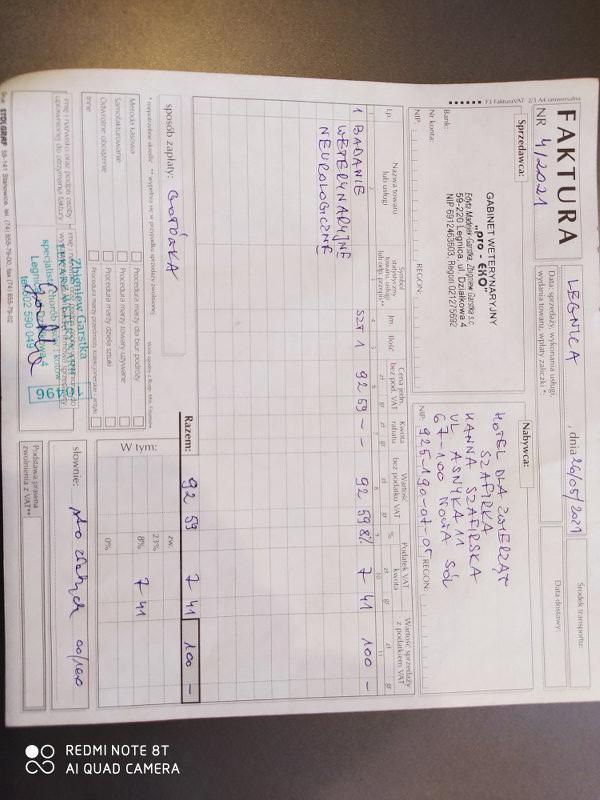 FAKTURA
NR 4/2021
LEGNICA, dnia 26/05/2021
Data: sprzedaży, wykonania usługi,
wydania towaru, wpłaty zaliczki *:
Środek transportu:
Data dostawy:
F3 FakturaVAT 2/3 A4 uniwersalna
Sprzedawca:
GABINET WETERYNARYJNY
"pro - EKO"
Edyta Madejek Garstka, Zbigniew Garstka s.c.
59-220 Legnica, ul. Działkowa 4
NIP 6912463603, Regon 021275692
Bank:
Nr konta:
NIP:
REGON:
Nabywca:
HOTEL DLA ZWIERZĄT
SZAFIRKA
HANNA SZAFIRSKA
UL ASNYKA 11
67-100 NOWA SÓL
NIP: 925-190-07-05 REGON:
Lp. Nazwa towaru lub usługi Symbol statystyczny towaru, usługi lub odp. przepis** Jm. Ilość Cena jedn. bez pod. VAT Kwota rabatu Wartość bez podatku VAT Podatek VAT Wartość sprzedaży z podatkiem VAT
zł gr zł gr zł gr % kwota zł gr zł gr
1 BADANIE SZT 1 92 59 - - 92 59 8% 7 41 100 -
WETERYNARYJNE
NEUROLOGICZNE
Razem: 92 59 7 41 100 -
W tym:
zw.
23%
8% 7 41
0%
sposób zapłaty: GOTÓWKA
* niepotrzebne skreślić ** wypełnia się w przypadku sprzedaży zwolnionej
Metoda kasowa
Samofakturowanie
Odwrotne obciążenie
Inne
Procedura marży dla biur podróży
Procedura marży towary używane
Procedura marży dzieła sztuki
słownie: sto złotych 00/100
Podstawa prawna
zwolnienia z VAT**
imię i nazwisko oraz podpis osoby
uprawnionej do otrzymania faktury
Zbigniew Garstka
LEKARZ WETERYNARII
tel. 602 590 049
10496
STOLGRAF 58-141 Stanowice, tel. (74) 855-79-00, fax (74) 855-79-02
REDMI NOTE 8T
AI QUAD CAMERA